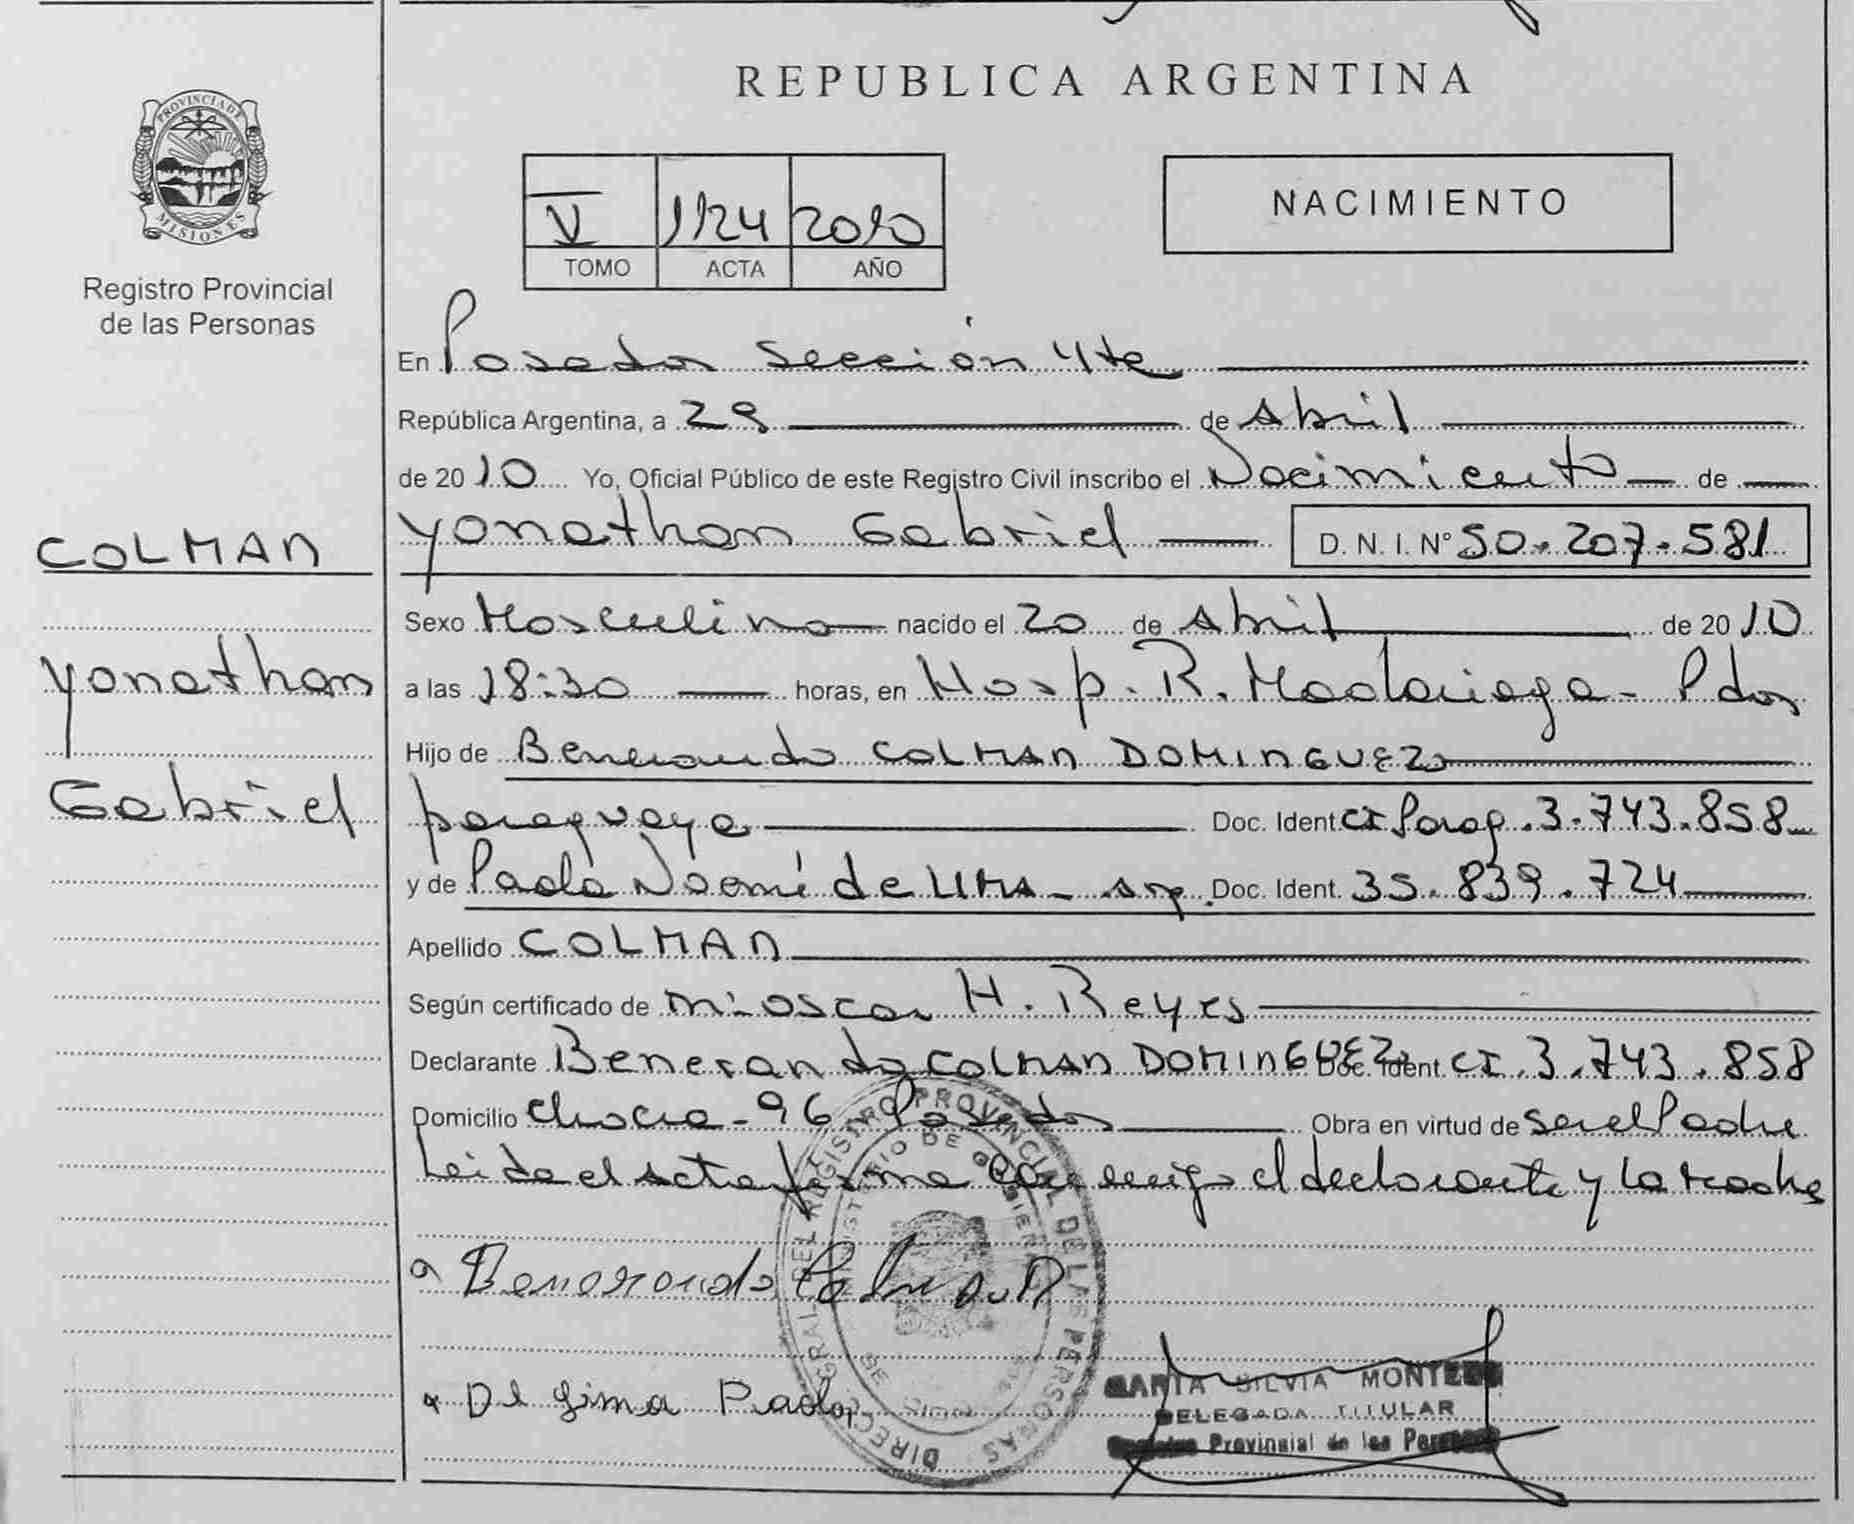 PROVINCIA DE
MISIONES
Registro Provincial
de las Personas
COLMAN
Yonathan
Gabriel
REPUBLICA ARGENTINA
V 1124 2010
TOMO ACTA AÑO
NACIMIENTO
En Posadas Sección 4ta
República Argentina, a 29 de Abril
de 2010 Yo, Oficial Público de este Registro Civil inscribo el Nacimiento de
Yonathan Gabriel D. N. I. Nº 50.207.581
Sexo Masculino nacido el 20 de Abril de 2010
a las 18:30 horas, en Hosp. R. Madariaga - Pdas
Hijo de Benerando COLMAN DOMINGUEZ
paraguaya Doc. Ident. CI Parag. 3.743.858
y de Paola Noemí de LIMA - arg. Doc. Ident. 35.839.724
Apellido COLMAN
Según certificado de Oscar H. Reyes
Declarante Benerando COLMAN DOMINGUEZ Doc. Ident. CI. 3.743.858
Domicilio Chacra - 96 Posadas Obra en virtud de ser el Padre
Leida el acta firma conmigo el declarante y la madre
Benerando Colman D
De Lima Paola
DIRECC GRAL DEL REGISTRO PROVINCIAL DE LAS PERSONAS
MINISTERIO DE GOBIERNO
MARTA SILVIA MONTERO
DELEGADA TITULAR
Registro Provincial de las Personas